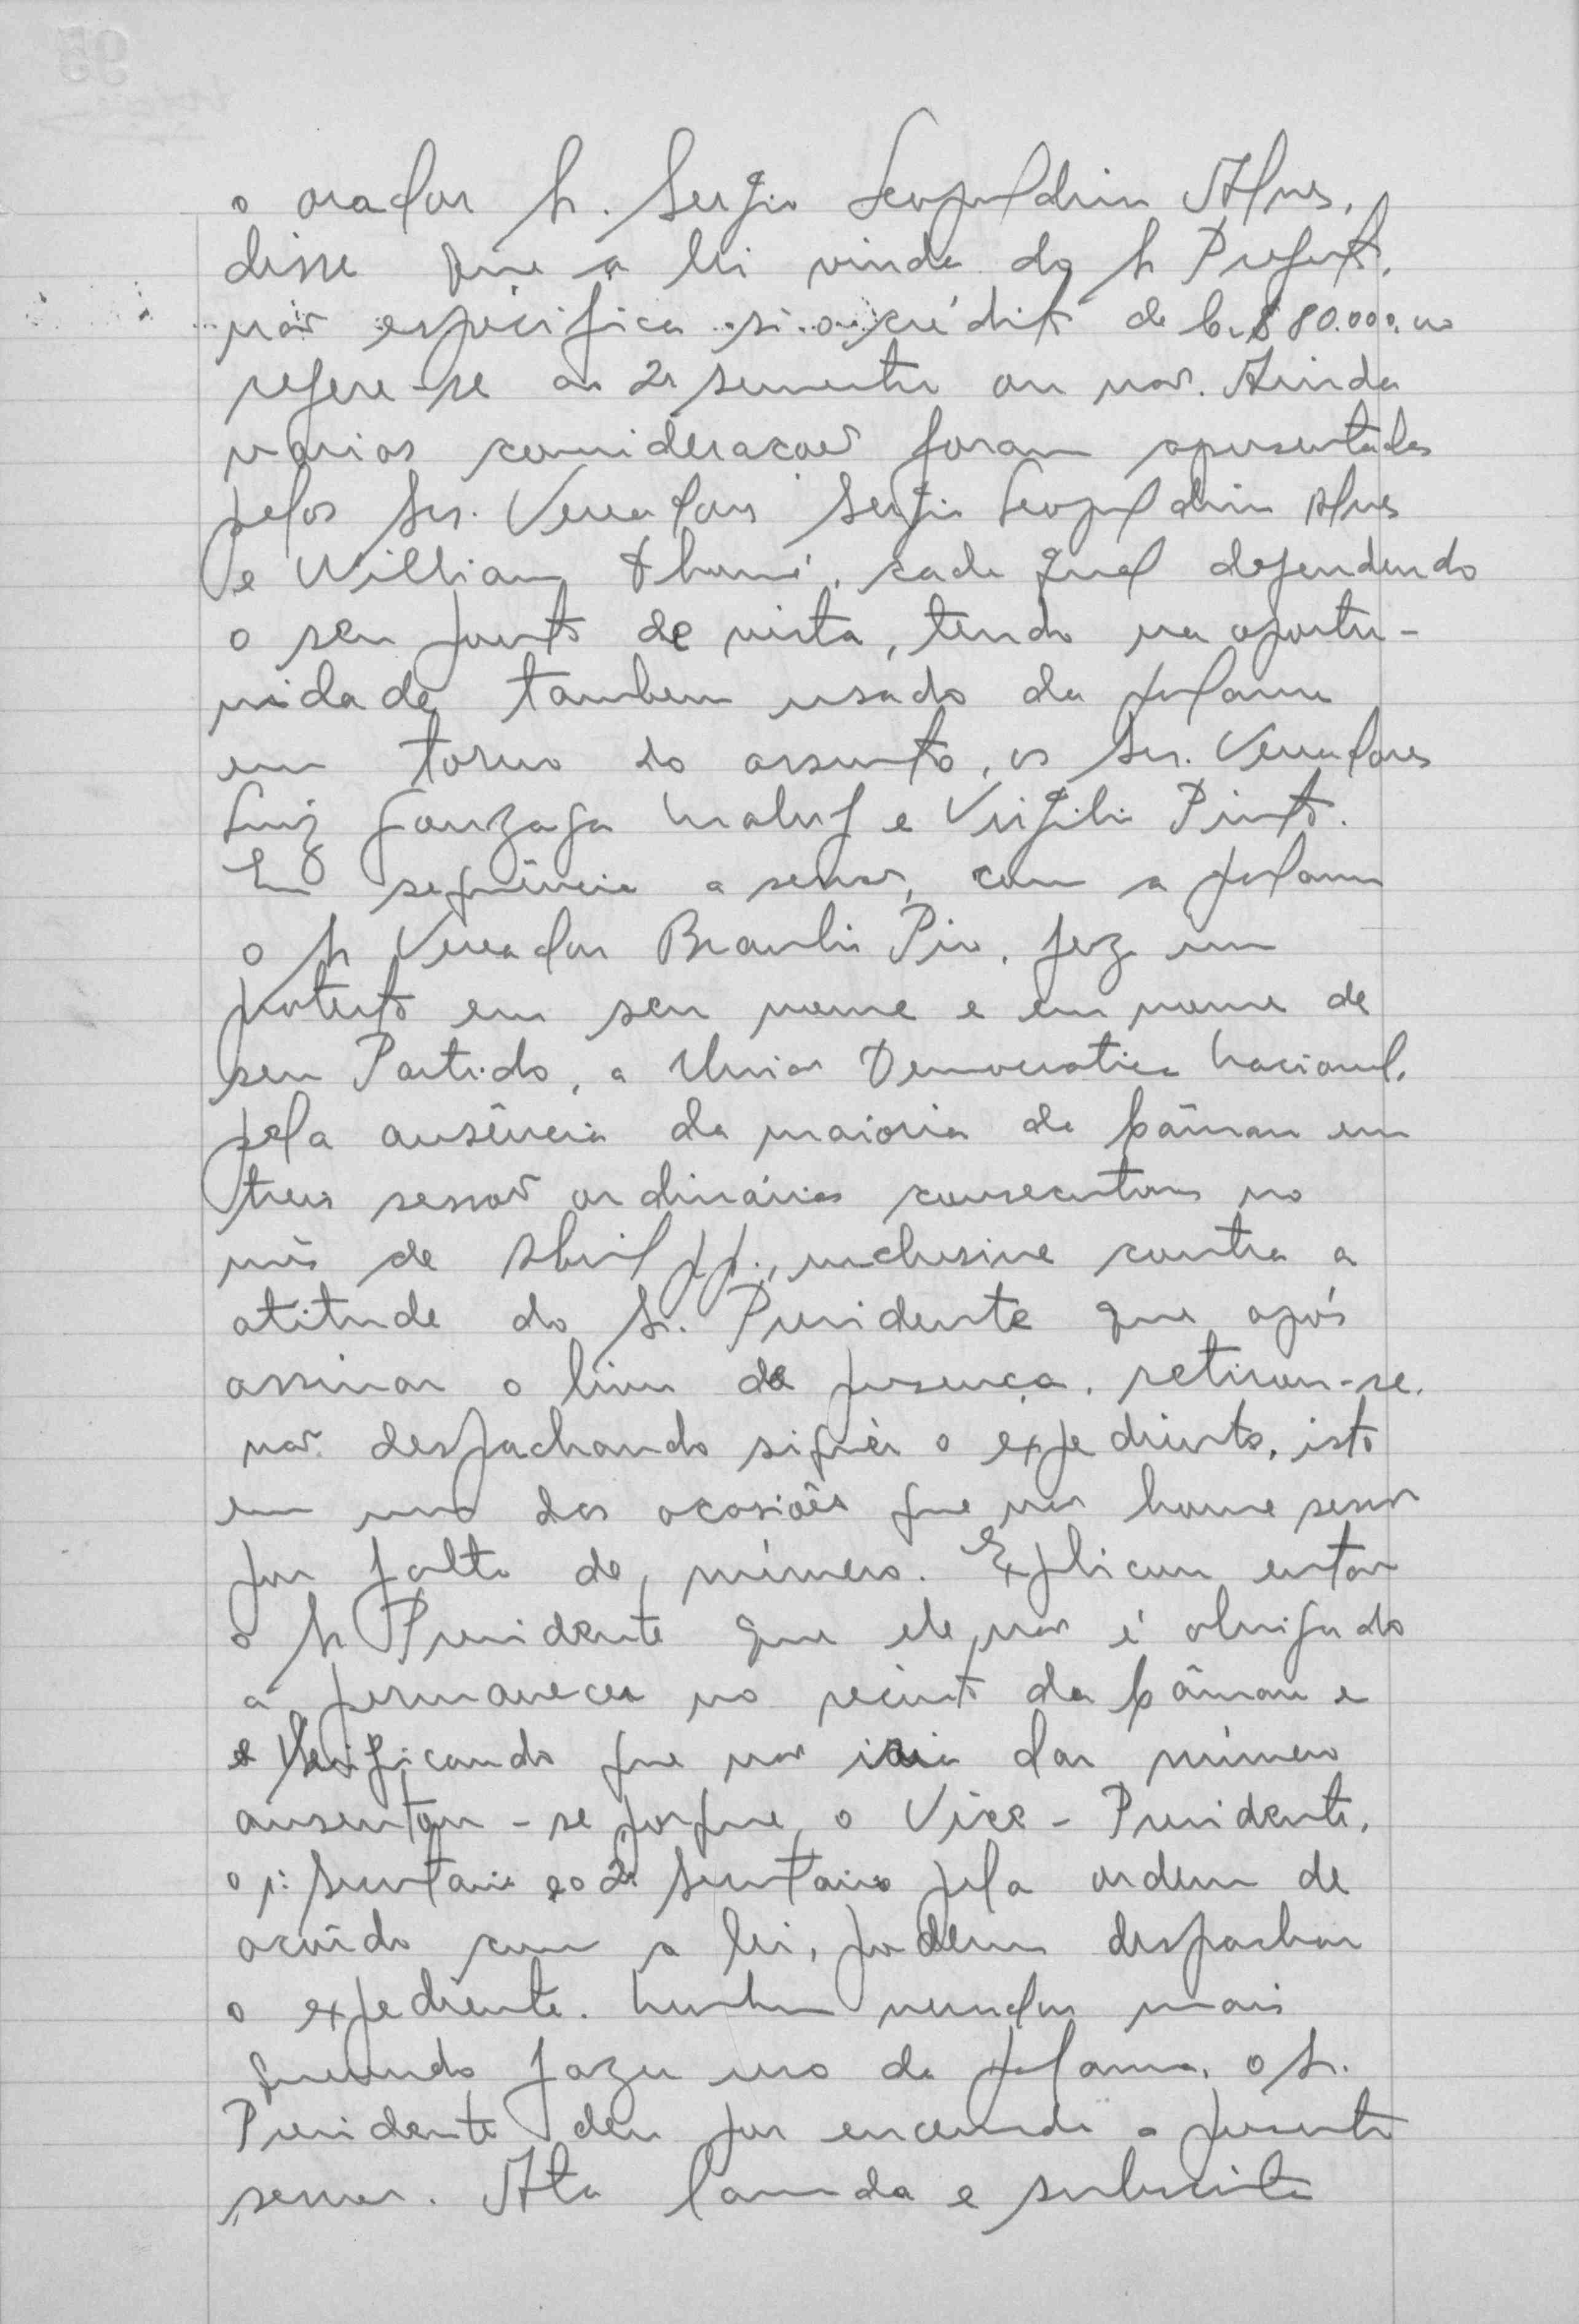 o orador Sr. Sergio Leopoldino Alves,
disse que a lei vinda do Sr Prefeito,
não especifica si o crédito de Cr$ 80.000,00
refere-se ao 2º semestre ou não. Ainda
varias considerações foram apresentadas
pelos Srs. Vereadores Sergio Leopoldino Alves
e William Thomé, cada qual defendendo
o seu ponto de vista, tendo na oportu-
nidade tambem usado da palavra
em torno do assunto, os Srs. Vereadores
Luiz Gonzaga Maluf e Virgilio Pinto.
Em sequência a sessão, com a palavra
o Sr Vereador Braulio Pio, fez um
protesto em seu nome e em nome de
seu Partido, a União Democratica Nacional,
pela ausência da maioria da Câmara em
tres sessões ordinárias consecutivas no
mês de Abril pp., inclusive contra a
atitude do Sr. Presidente que após
assinar o livro de presença, retirou-se,
não despachando siquér o expediente, isto
em uma das ocasiões que não houve sessão
por falta de número. Explicou então
o Sr Presidente que ele não é obrigado
a permanecer no recinto da Câmara e
e Verificando que não iria dar número
ausentou-se porque o Vice-Presidente,
o 1º Secretario e o 2º Secretario pela ordem de
acôrdo com a lei, podem despachar
o expediente. Nenhum vereador mais
querendo fazer uso da palavra, o Sr.
Presidente deu por encerrada a presente
sessão. Ata lavrada e subscrita